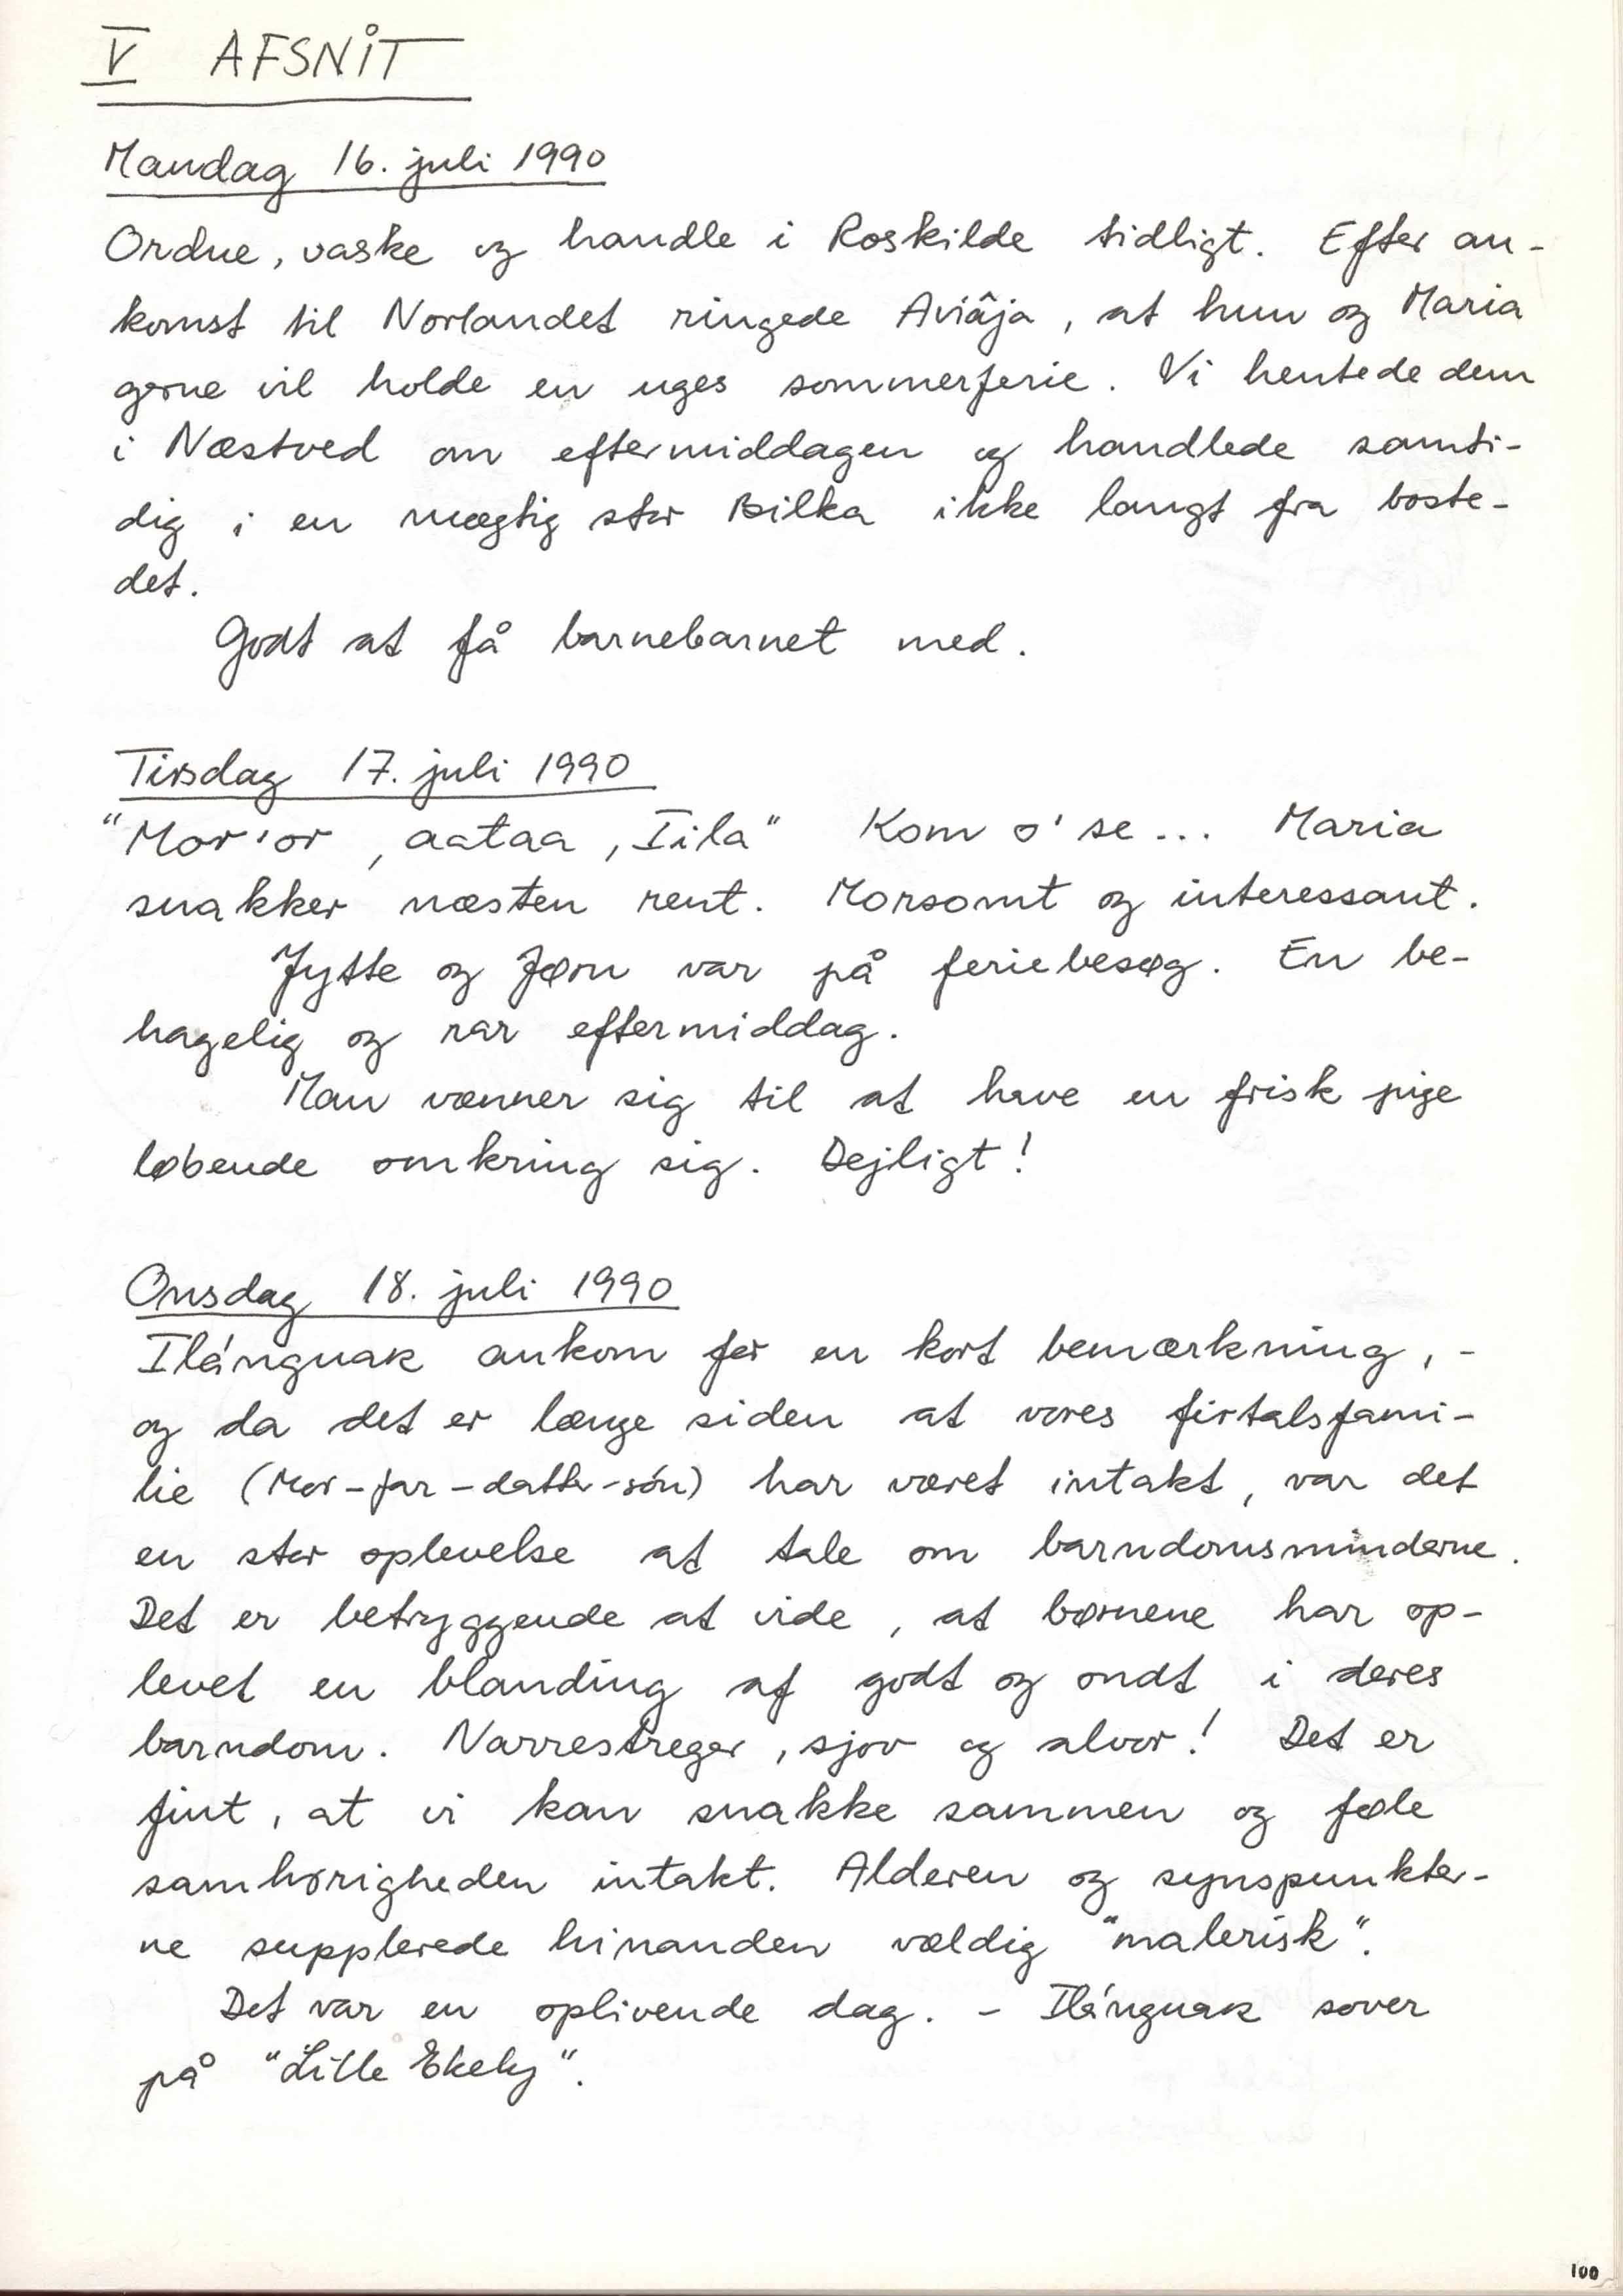 V AFSNIT
Mandag 16. juli 1990
Ordne, vaske og handle i Roskilde tidligt. Efter an-
komst til Norlandet ringede Aviâja, at hun og Maria
gerne vil holde en uges sommerferie. Vi hentede dem
i Næstved om eftermiddagen og handlede samti-
dig i en mægtig stor Bilka ikke langt fra boste-
det.
Godt at få barnebarnet med.
Tirsdag 17. juli 1990
"Mor'or, aataa, Iila" Kom o' se... Maria
snakker næsten rent. Morsomt og interessant.
Jytte og Jørn var på feriebesøg. En be-
hagelig og rar eftermiddag.
Man vænner sig til at have en frisk pige
løbende omkring sig. Dejligt!
Onsdag 18. juli 1990
IlánguaK ankom for en kort bemærkning, -
og da det er længe siden at vores firtalsfami-
lie (Mor-far-datter-søn) har været intakt, var det
en stor oplevelse at tale om barndomsminderne.
Det er betryggende at vide, at børnene har op-
levet en blanding af godt og ondt i deres
barndom. Narrestreger, sjov og alvor! Det er
fint, at vi kan snakke sammen og føle
samhørigheden intakt. Alderen og synspunkter-
ne supplerede hinanden vældig "malerisk".
Det var en oplivende dag. - IlánguaK sover
på "Lille Ekely".
100